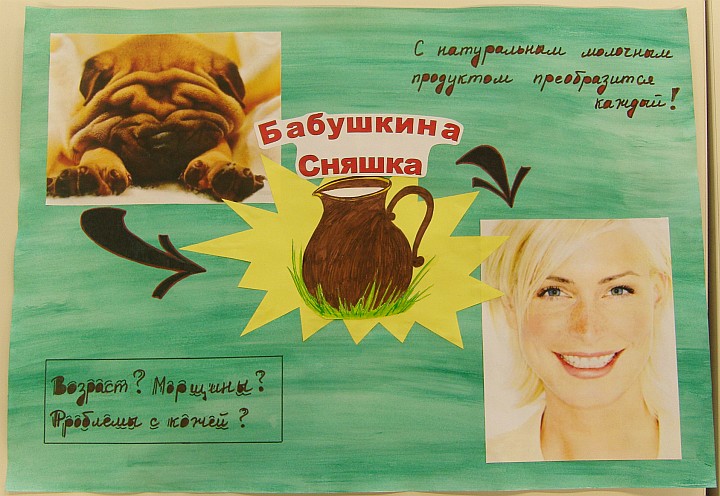 С натуральным молочным
продуктом преобразится
каждый!
Бабушкина
Сняшка
Возраст? Морщины?
Проблемы с кожей?